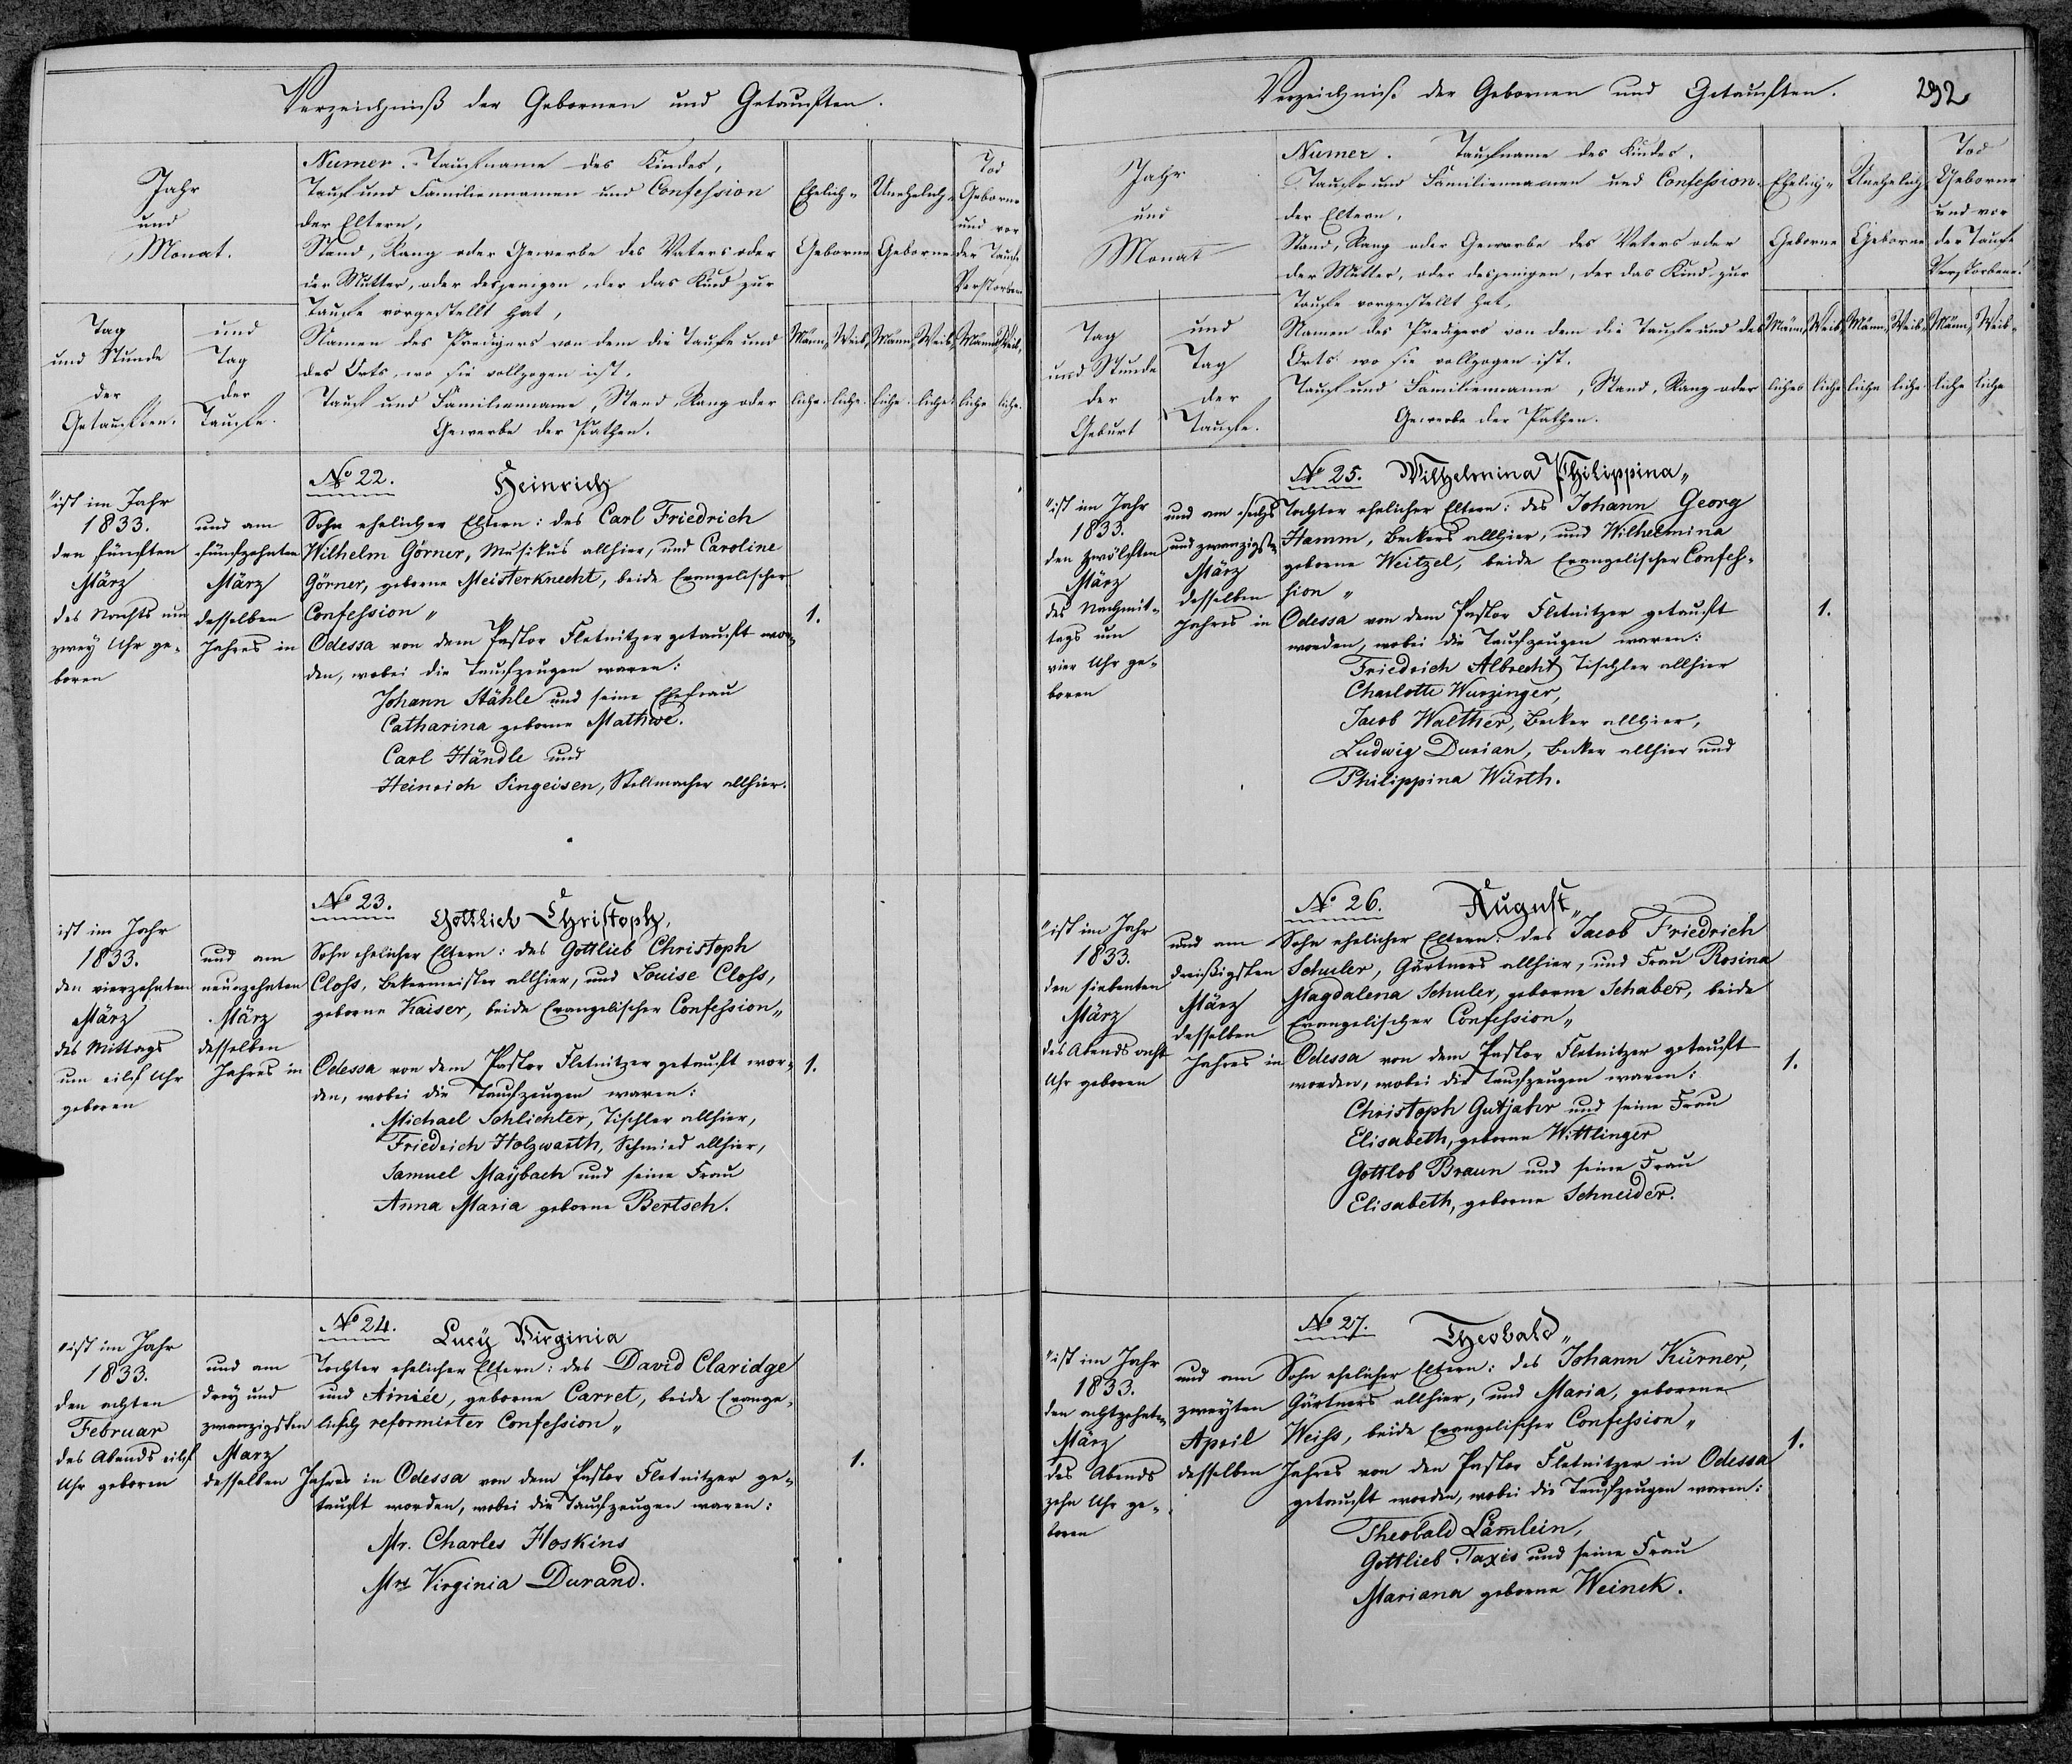 Verzeichniß der Gebornen und Getauften.
Jahr
und
Monat.
Tag
und Stunde
der
Getauften.
und
Tag
der
Taufe.
Numer. Taufname des Kindes,
Tauf und Familiennamen und Confession
der Eltern,
Stand, Rang oder Gewerbe des Vaters oder
der Mutter, oder desjenigen, der das Kind zur
Taufe vorgestellt hat,
Namen des Predigers von dem die Taufe und
des Orts, wo sie vollzogen ist,
Tauf und Familienname, Stand, Rang oder
Gewerbe der Pathen.
Ehelich-
Geborne
Unehelich-
Geborne
Tod
Geborne
und vor
der Taufe
Verstorben
Männ- Weib- Männ- Weib- Männ- Weib-
liche. liche. liche. liche. liche liche.
No 22. Heinrich
"ist im Jahr
1833.
den fünften
März
des Nachts um
zwey Uhr ge-
boren
und am
fünfzehnten
März
desselben
Jahres in
Sohn ehelicher Eltern: des Carl Friedrich
Wilhelm Görner, Musikus allhier, und Caroline
Görner, geborne Meisterknecht, beide Evangelischer
Confession"
Odessa von dem Pastor Fletnitzer getauft wor-
den, wobei die Taufzeugen waren:
Johann Stähle und seine Ehefrau
Catharina geborne Mathwe.
Carl Händle und
Heinrich Singeisen, Stellmacher allhier.
1.
No 23.
Gottlieb Christoph,
ist im Jahr
1833.
den vierzehnten
März
des Mittags
um eilf Uhr
geboren
und am
neunzehnten
März
desselben
Jahres in
Sohn ehelicher Eltern: des Gottlieb Christoph
Closs, Bekermeister allhier, und Louise Closs,
geborne Kaiser, beide Evangelischer Confession"
Odessa von dem Pastor Fletnitzer getauft wor-
den, wobei die Taufzeugen waren:
Michael Schlichter, Tischler allhier,
Friedrich Holzwarth, Schmied allhier,
Samuel Maÿbach und seine Frau
Anna Maria geborne Bertsch.
1.
No 24.
Lucÿ Virginia
"ist im Jahr
1833.
den achten
Februar
des Abends eilf
Uhr geboren
und am
drey und
zwanzigsten
März
desselben
Tochter ehelicher Eltern: des David Claridge
und Ainiée, geborne Carret, beide Evange-
lisch reformirter Confession"
Jahres in Odessa von dem Pastor Fletnitzer ge-
tauft worden, wobei die Taufzeugen waren:
Mr. Charles Hoskins
Mrs Virginia Durand.
1.
Verzeichniß der Gebornen und Getauften. 292
Jahr
und
Monat
Tag
und Stunde
der
Geburt
und
Tag
der
Taufe.
Numer. Taufname des Kindes.
Tauf- und Familiennamen und Confession
der Eltern,
Stand, Rang oder Gewerbe des Vaters oder
der Mutter, oder desjenigen, der das Kind zur
Taufe vorgestellt hat,
Namen des Predigers von dem die Taufe und des
Orts wo sie vollzogen ist.
Tauf und Familienname, Stand, Rang oder
Gewerbe der Pathen.
Ehelich-
Geborne
Unehelich
Geborne
Tod
Geborne
und vor
der Taufe
Verstorbene.
Männ- Weib- Männ- Weib- Männ- Weib-
liches liche liche liche liche liche
No 25. Wilhelmina Philippina"
"ist im Jahr
1833.
den zwölften
März
des Nachmit-
tags um
vier Uhr ge-
boren
und am sechs
und zwanzigsten
März
desselben
Jahres in
Tochter ehelicher Eltern: des Johann Georg
Hamm, Beckers allhier, und Wilhelmina
geborne Weitzel, beide Evangelischer Confes-
sion"
Odessa von dem Pastor Fletnitzer getauft
worden, wobei die Taufzeugen waren:
Friedrich Albrecht Tischler allhier
Charlotte Wurzinger,
Jacob Walther, Becker allhier,
Ludwig Durian, Becker allhier und
Philippina Würth.
1.
No 26. August"
"ist im Jahr
1833.
den siebenten
März
des Abends acht
Uhr geboren
und am
dreißigsten
März
desselben
Jahres in
Sohn ehelicher Eltern: des Jacob Friedrich
Schuler, Gärtners allhier, und Frau Rosina
Magdalena Schuler, geborne Schaber, beide
Evangelischer Confession"
Odessa von dem Pastor Fletnitzer getauft
worden, wobei die Taufzeugen waren:
Christoph Gutjahr und seine Frau
Elisabeth, geborne Wittlinger
Gottlob Braun und seine Frau
Elisabeth, geborne Schneider.
1.
No 27. Theobald"
"ist im Jahr
1833.
den achtzehnten
März
des Abends
zehn Uhr ge-
boren
und am
zweyten
April
desselben
Sohn ehelicher Eltern: des Johann Kürner,
Gärtners allhier, und Maria, geborene
Weiss, beide Evangelischer Confession"
Jahres von den Pastor Fletnitzer in Odessa
getauft worden, wobei die Taufzeugen waren:
Theobald Lämlein,
Gottlieb Taxis und seine Frau
Mariana geborne Weinek.
1.